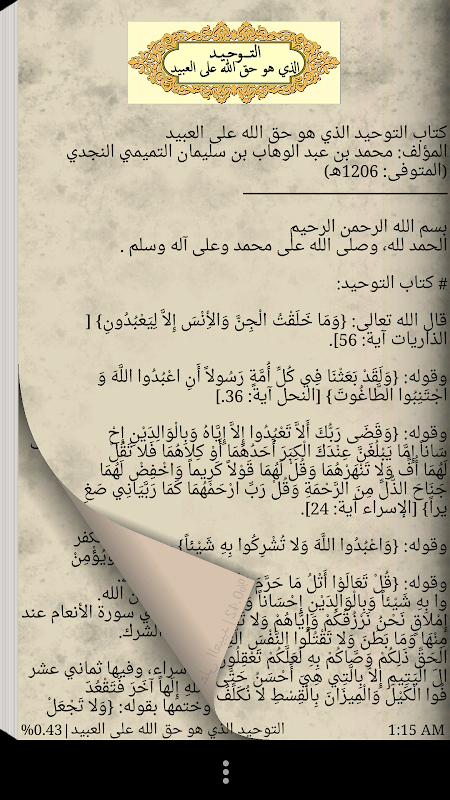 التوحيد
الذي هو حق الله على العبيد
كتاب التوحيد الذي هو حق الله على العبيد
المؤلف: محمد بن عبد الوهاب بن سليمان التميمي النجدي
(المتوفى: 1206هـ)
بسم الله الرحمن الرحيم
الحمد لله، وصلى الله على محمد وعلى آله وسلم .
# كتاب التوحيد:
قال الله تعالى: {وَمَا خَلَقْتُ الْجِنَّ وَالأِنْسَ إِلاَّ لِيَعْبُدُونِ} [
الذاريات آية: 56].
وقوله: {وَلَقَدْ بَعَثْنَا فِي كُلِّ أُمَّةٍ رَسُولاً أَنِ اعْبُدُوا اللَّهَ وَ
اجْتَنِبُوا الطَّاغُوتَ} [النحل آية: 36.]
وقوله: {وَقَضَى رَبُّكَ أَلاَّ تَعْبُدُوا إِلاَّ إِيَّاهُ وَبِالْوَالِدَيْنِ إِحْ
سَاناً إِمَّا يَبْلُغَنَّ عِنْدَكَ الْكِبَرَ أَحَدُهُمَا أَوْ كِلاهُمَا فَلا تَقُلْ
لَهُمَا أُفٍّ وَلا تَنْهَرْهُمَا وَقُلْ لَهُمَا قَوْلاً كَرِيماً وَاخْفِضْ لَهُمَا
جَنَاحَ الذُّلِّ مِنَ الرَّحْمَةِ وَقُلْ رَبِّ ارْحَمْهُمَا كَمَا رَبَّيَانِي صَغِ
يراً} [الإسراء آية: 24].
وقوله: {وَاعْبُدُوا اللَّهَ وَلا تُشْرِكُوا بِهِ شَيْئاً}
وقوله: {قُلْ تَعَالَوْا أَتْلُ مَا حَرَّمَ
وا بِهِ شَيْئاً وَبِالْوَالِدَيْنِ إِحْسَاناً الله.
إِمْلاقٍ نَحْنُ نَرْزُقُكُمْ وَإِيَّاهُمْ وَلا سورة الأنعام عند
مِنْهَا وَمَا بَطَنَ وَلا تَقْتُلُوا النَّفْسَ الشرك.
الْحَقِّ ذَلِكُمْ وَصَّاكُمْ بِهِ لَعَلَّكُمْ تَعْقِلُونَ
الَ الْيَتِيمِ إِلاَّ بِالَّتِي هِيَ أَحْسَنُ حَتَّى وفيها ثماني عشر
فُوا الْكَيْلَ وَالْمِيزَانَ بِالْقِسْطِ لا نُكَلِّفُ إِلَهاً آخَرَ فَتَقْعُدَ
وختمها بقوله: {وَلا تَجْعَلْ
1:15 AM
التوحيد الذي هو حق الله على العبيد|%0.43